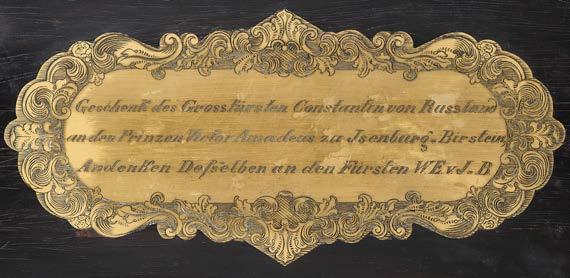 Geschenk des Grossfürsten Constantin von Russland
an den Prinzen Victor Amadeus zu Jsenburg-Birstein,
Andenken Deßelben an den Fürsten W E v J-B